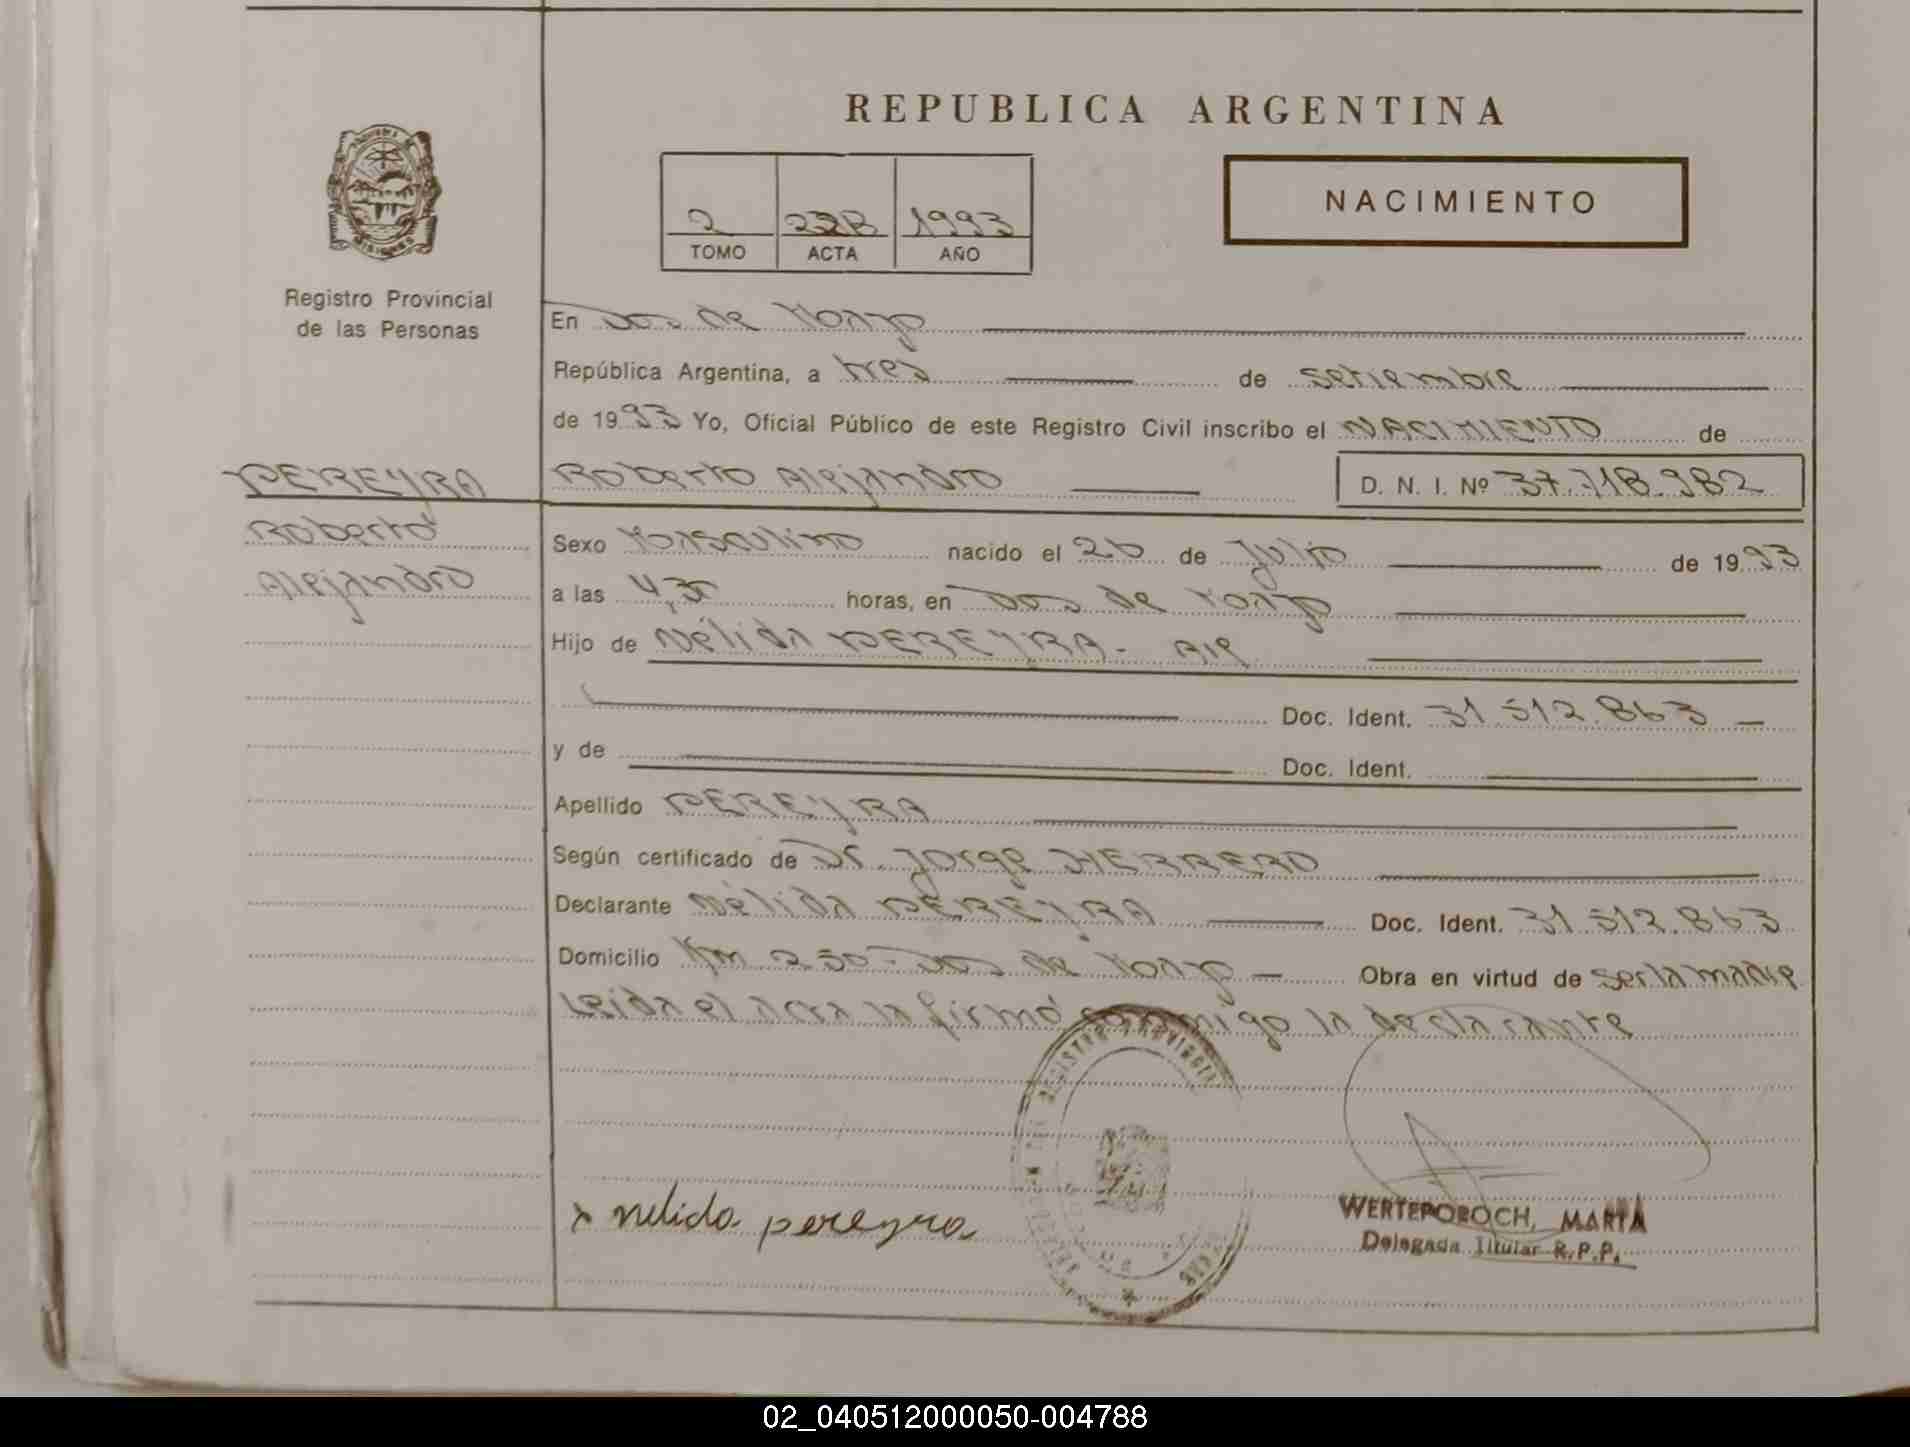 REPUBLICA ARGENTINA
NACIMIENTO
2 228 1993
TOMO ACTA AÑO
MISIONES
Registro Provincial
de las Personas
En Dos de Mayo
República Argentina, a tres de setiembre
de 1993 Yo, Oficial Público de este Registro Civil inscribo el NACIMIENTO de
PEREYRA
Roberto
Alejandro
Roberto Alejandro D. N. I. Nº 37.718.982
Sexo Masculino nacido el 26 de Julio de 1993
a las 4,30 horas, en Dos de Mayo
Hijo de Nélida PEREYRA.- Arg
Doc. Ident. 31.512.863
y de Doc. Ident.
Apellido PEREYRA
Según certificado de Dr. Jorge HERRERO
Declarante Nélida PEREYRA Doc. Ident. 31.512.863
Domicilio Km 250 - Dos de Mayo - Obra en virtud de ser la madre
Leída el acta la firmó conmigo la declarante
REGISTRO PROVINCIAL
x nelida pereyra
WERTEPOROCH, MARTA
Delegada Titular R.P.P.
02_040512000050-004788